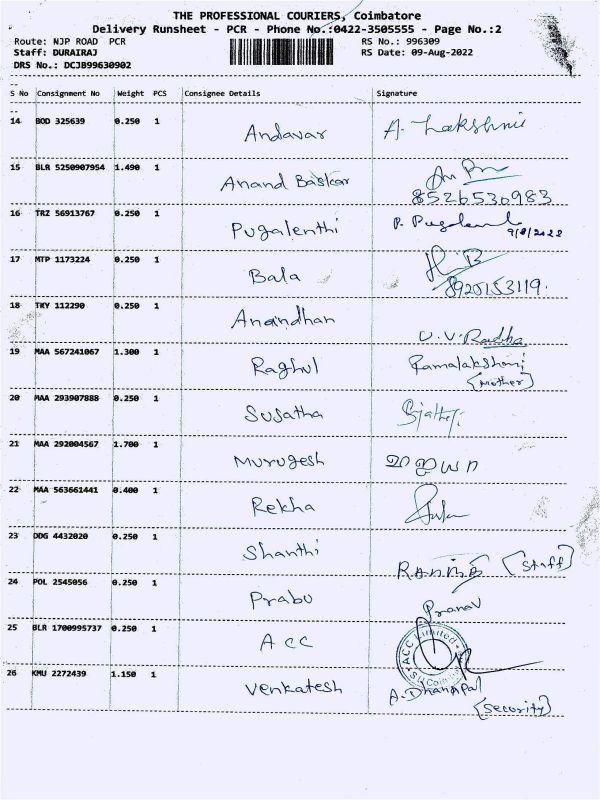 THE PROFESSIONAL COURIERS, Coimbatore
Delivery Runsheet - PCR - Phone No.:0422-3505555 - Page No.:2
Route: NJP ROAD PCR RS No.: 996309
Staff: DURAIRAJ RS Date: 09-Aug-2022
DRS No.: DCJB99630902
S No Consignment No Weight PCS Consignee Details Signature
14 BOD 325639 0.250 1 Andavar A. Lakshmi
15 BLR 5250907954 1.490 1 Anand Baskar
8526530983
16 TRZ 56913767 0.250 1 Pugalenthi P.
9/8/2022
17 MTP 1173224 0.250 1 Bala
8925153119.
18 TKY 112290 0.250 1 Anandhan U.V. Radha
19 MAA 567241067 1.300 1 Raghul Ramalakshmi
(Mother)
20 MAA 293907888 0.250 1 Susatha
21 MAA 292004567 1.700 1 Murugesh
22 MAA 563661441 0.400 1 Rekha
23 DDG 4432020 0.250 1 Shanthi (Staff)
24 POL 2545056 0.250 1 Prabu Pranav
25 BLR 1700995737 0.250 1 ACC ACC Limited
26 KMU 2272439 1.150 1 Venkatesh A. Dhanapal
(Security)